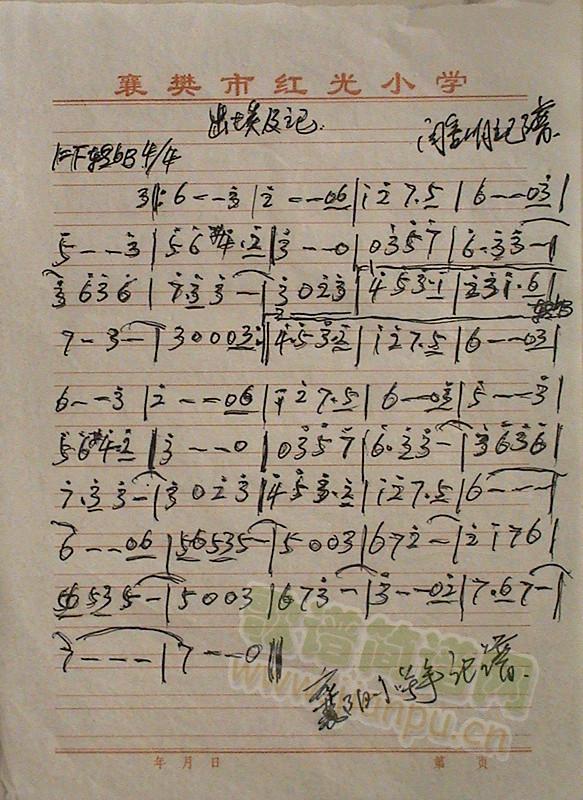 襄樊市红光小学
出埃及记
1=F转bB 4/4
3‖: 6 - - 3 | 2 - - 06 | i 2 7.5 | 6 - - 03 |
5 - - 3 | 5 6 #4.2 | 3 - - 0 | 0 3 5 7 | 6.3 3 - |
3 6 3 6 | 7.3 3 - | 3 0 2 3 | 4 5 3.1 | 2 3 1.6 |
7 - 3 - | 3 0 0 03 :‖ 4.5 3.2 | i 2 7.5 | 6 - - 03 |
6 - - 3 | 2 - - 06 | i 2 7.5 | 6 - - 03 | 5 - - 3 |
5 6 #4.2 ‖ 3 - - 0 | 0 3 5 7 | 6.3 3 - | 3 6 3 6 |
7.3 3 - | 3 0 2 3 | 4 5 3.2 | i 2 7.5 | 6 - - - |
6 - - 06 | 56 53 5 - | 5 0 0 3 | 6 7 2 - | 2 i 7 6 |
56 53 5 - | 5 0 0 3 | 6 7 3 - | 3 - - 02 | 7.6 7 - |
7 - - - | 7 - - 0 ‖
记谱
歌谱简谱网
www.jianpu.cn
年 月 日
第 页